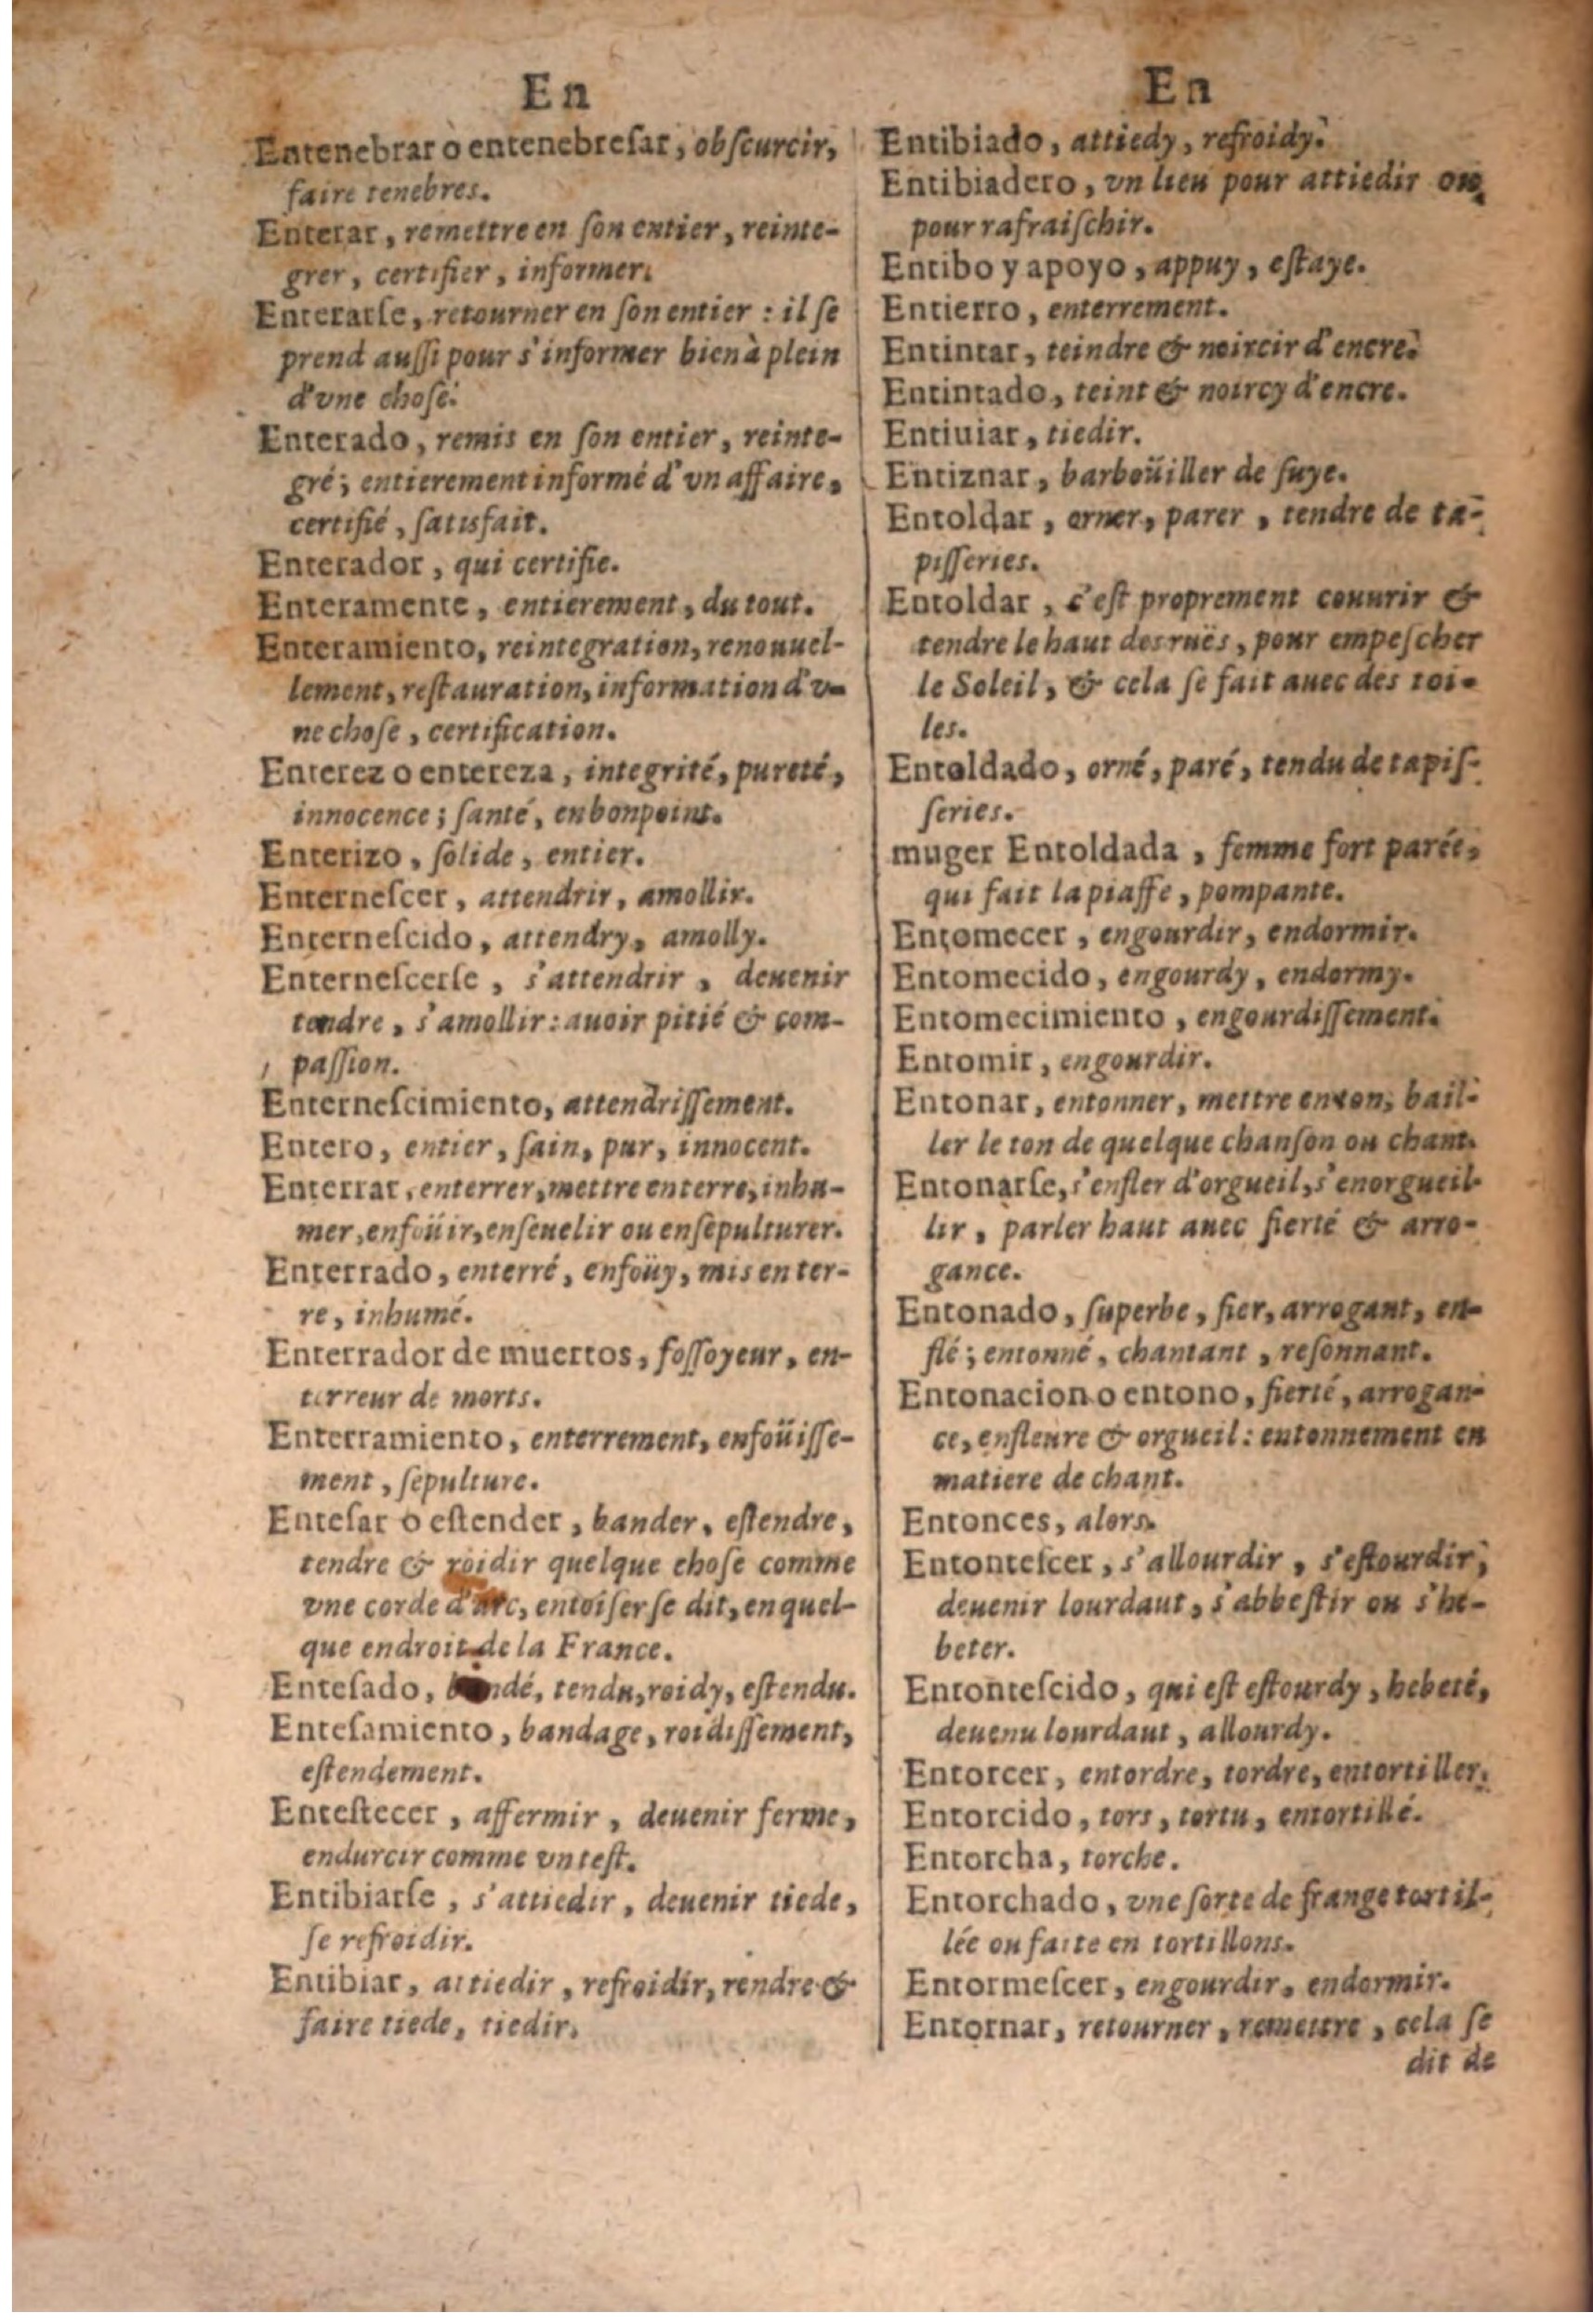 En
Entenebrar o entenebreſar, obſcurcir,
faire tenebres.
Enterar, remettre en ſon entier, reinte-
grer, certifier, informer.
Enterarſe, retourner en ſon entier : il ſe
prend auſſi pour s'informer bien à plein
d'vne choſe.
Enterado, remis en ſon entier, reinte-
gré; entierement informé d'vn affaire,
certifié, ſatisfait.
Enterador, qui certifie.
Enteramente, entierement, du tout.
Enteramiento, reintegration, renouuel-
lement, reſtauration, information d'v-
ne choſe, certification.
Enterez o entereza, integrité, pureté,
innocence; ſanté, enbonpoint.
Enterizo, ſolide, entier.
Enterneſcer, attendrir, amollir.
Enterneſcido, attendry, amolly.
Enterneſcerſe, s'attendrir, deuenir
tendre, s'amollir: auoir pitié & com-
paſſion.
Enterneſcimiento, attendriſſement.
Entero, entier, ſain, pur, innocent.
Enterrar, enterrer, mettre enterre, inhu-
mer, enfoüir, enſeuelir ou enſepulturer.
Enterrado, enterré, enfoüy, mis en ter-
re, inhumé.
Enterrador de muertos, foſſoyeur, en-
terreur de morts.
Enterramiento, enterrement, enfoüiſſe-
ment, ſepulture.
Enteſar o eſtender, bander, eſtendre,
tendre & roidir quelque choſe comme
vne corde d'arc, entoiſer ſe dit, en quel-
que endroit de la France.
Enteſado, bandé, tendu, roidy, eſtendu.
Enteſamiento, bandage, roidiſſement,
eſtendement.
Enteſtecer, affermir, deuenir ferme,
endurcir comme vn teſt.
Entibiarſe, s'attiedir, deuenir tiede,
ſe refroidir.
Entibiar, attiedir, refroidir, rendre &
faire tiede, tiedir.
En
Entibiado, attiedy, refroidy.
Entibiadero, vn lieu pour attiedir ou
pour rafraiſchir.
Entibo y apoyo, appuy, eſtaye.
Entierro, enterrement.
Entintar, teindre & noircir d'encre.
Entintado, teint & noircy d'encre.
Entiuiar, tiedir.
Entiznar, barboüiller de ſuye.
Entoldar, orner, parer, tendre de ta-
piſſeries.
Entoldar, c'eſt proprement couurir &
tendre le haut des ruës, pour empeſcher
le Soleil, & cela ſe fait auec des toi-
les.
Entoldado, orné, paré, tendu de tapiſ-
ſeries.
muger Entoldada, femme fort parée,
qui fait la piaffe, pompante.
Entomecer, engourdir, endormir.
Entomecido, engourdy, endormy.
Entomecimiento, engourdiſſement.
Entomir, engourdir.
Entonar, entonner, mettre en ton, bail-
ler le ton de quelque chanſon ou chant.
Entonarſe, s'enfler d'orgueil, s'enorgueil-
lir, parler haut auec fierté & arro-
gance.
Entonado, ſuperbe, fier, arrogant, en-
flé; entonné, chantant, reſonnant.
Entonacion o entono, fierté, arrogan-
ce, enfleure & orgueil: entonnement en
matiere de chant.
Entonces, alors.
Entonteſcer, s'allourdir, s'eſtourdir,
deuenir lourdaut, s'abbeſtir ou s'he-
beter.
Entonteſcido, qui eſt eſtourdy, hebeté,
deuenu lourdaut, allourdy.
Entorcer, entordre, tordre, entortiller.
Entorcido, tors, tortu, entortillé.
Entorcha, torche.
Entorchado, vne ſorte de frange tortil-
lée ou faite en tortillons.
Entormeſcer, engourdir, endormir.
Entornar, retourner, remettre, cela ſe
dit de